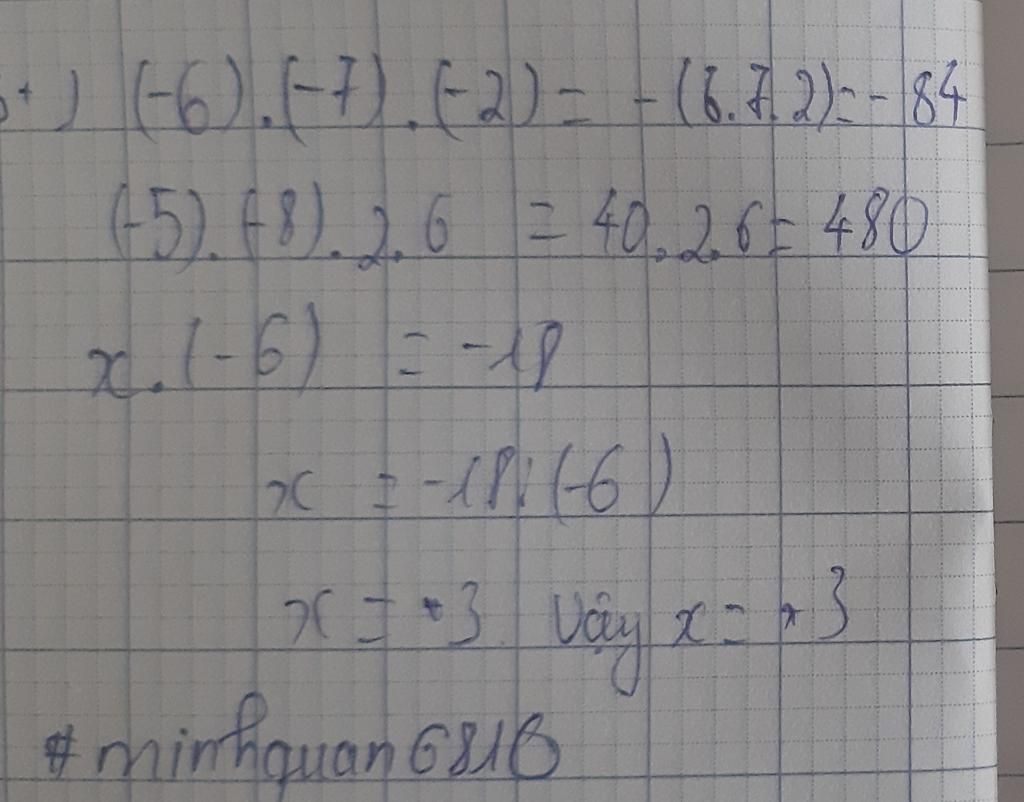 ) (-6).(-7).(-2) = -(6.7.2) = -84
(-5).(-8).2.6 = 40.2.6 = 480
x.(-6) = -18
x = -18:(-6)
x = 3 Vậy x = 3
#minhquan6816